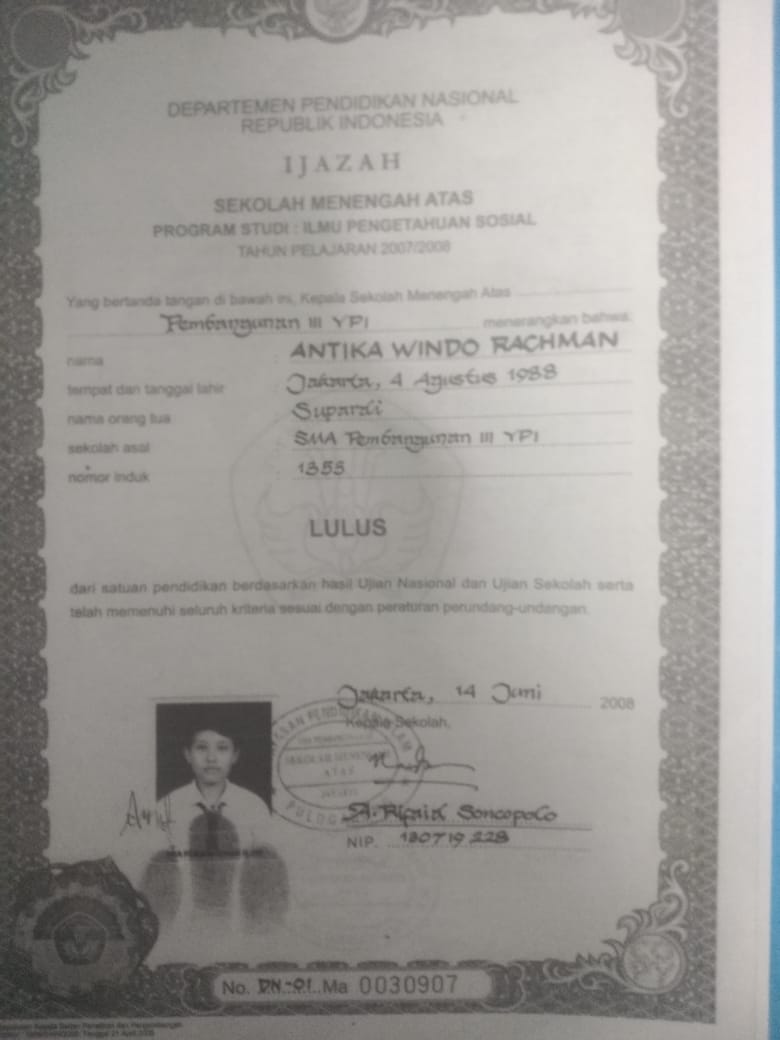 DEPARTEMEN PENDIDIKAN NASIONAL
REPUBLIK INDONESIA
IJAZAH
SEKOLAH MENENGAH ATAS
PROGRAM STUDI : ILMU PENGETAHUAN SOSIAL
TAHUN PELAJARAN 2007/2008
Yang bertanda tangan di bawah ini, Kepala Sekolah Menengah Atas
Pembangunan III YPI menerangkan bahwa:
nama : ANTIKA WINDO RACHMAN
tempat dan tanggal lahir : Jakarta, 4 Agustus 1988
nama orang tua : Supardi
sekolah asal : SMA Pembangunan III YPI
nomor induk : 1355
LULUS
dari satuan pendidikan berdasarkan hasil Ujian Nasional dan Ujian Sekolah serta
telah memenuhi seluruh kriteria sesuai dengan peraturan perundang-undangan.
Jakarta, 14 Juni 2008
Kepala Sekolah,
SEKOLAH MENENGAH
ATAS
Soncopolo
NIP. 130719228
No. DN-01 Ma 0030907